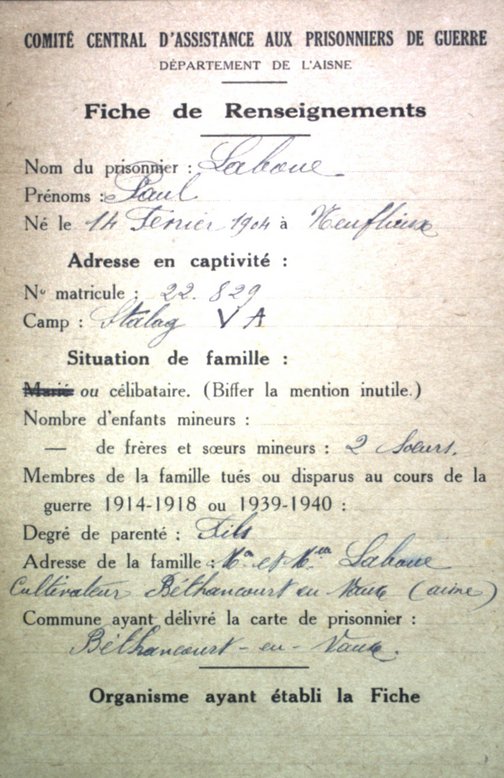 COMITÉ CENTRAL D'ASSISTANCE AUX PRISONNIERS DE GUERRE
DÉPARTEMENT DE L'AISNE
Fiche de Renseignements
Nom du prisonnier : Laboue
Prénoms : Paul
Né le 14 Février 1904 à Neuflieux
Adresse en captivité :
No matricule : 22.829
Camp : Stalag VA
Situation de famille :
Marié ou célibataire. (Biffer la mention inutile.)
Nombre d'enfants mineurs :
— de frères et sœurs mineurs : 2 Sœurs.
Membres de la famille tués ou disparus au cours de la
guerre 1914-1918 ou 1939-1940 :
Degré de parenté : Fils
Adresse de la famille : Mr et Mme Laboue
Cultivateur Béthancourt en Vaux (aisne)
Commune ayant délivré la carte de prisonnier :
Béthancourt-en-Vaux.
Organisme ayant établi la Fiche